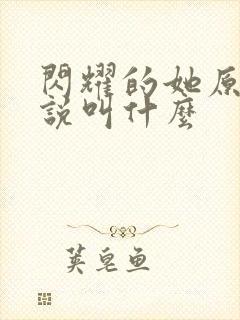 閃耀的她原
說叫什麼
荚皂鱼